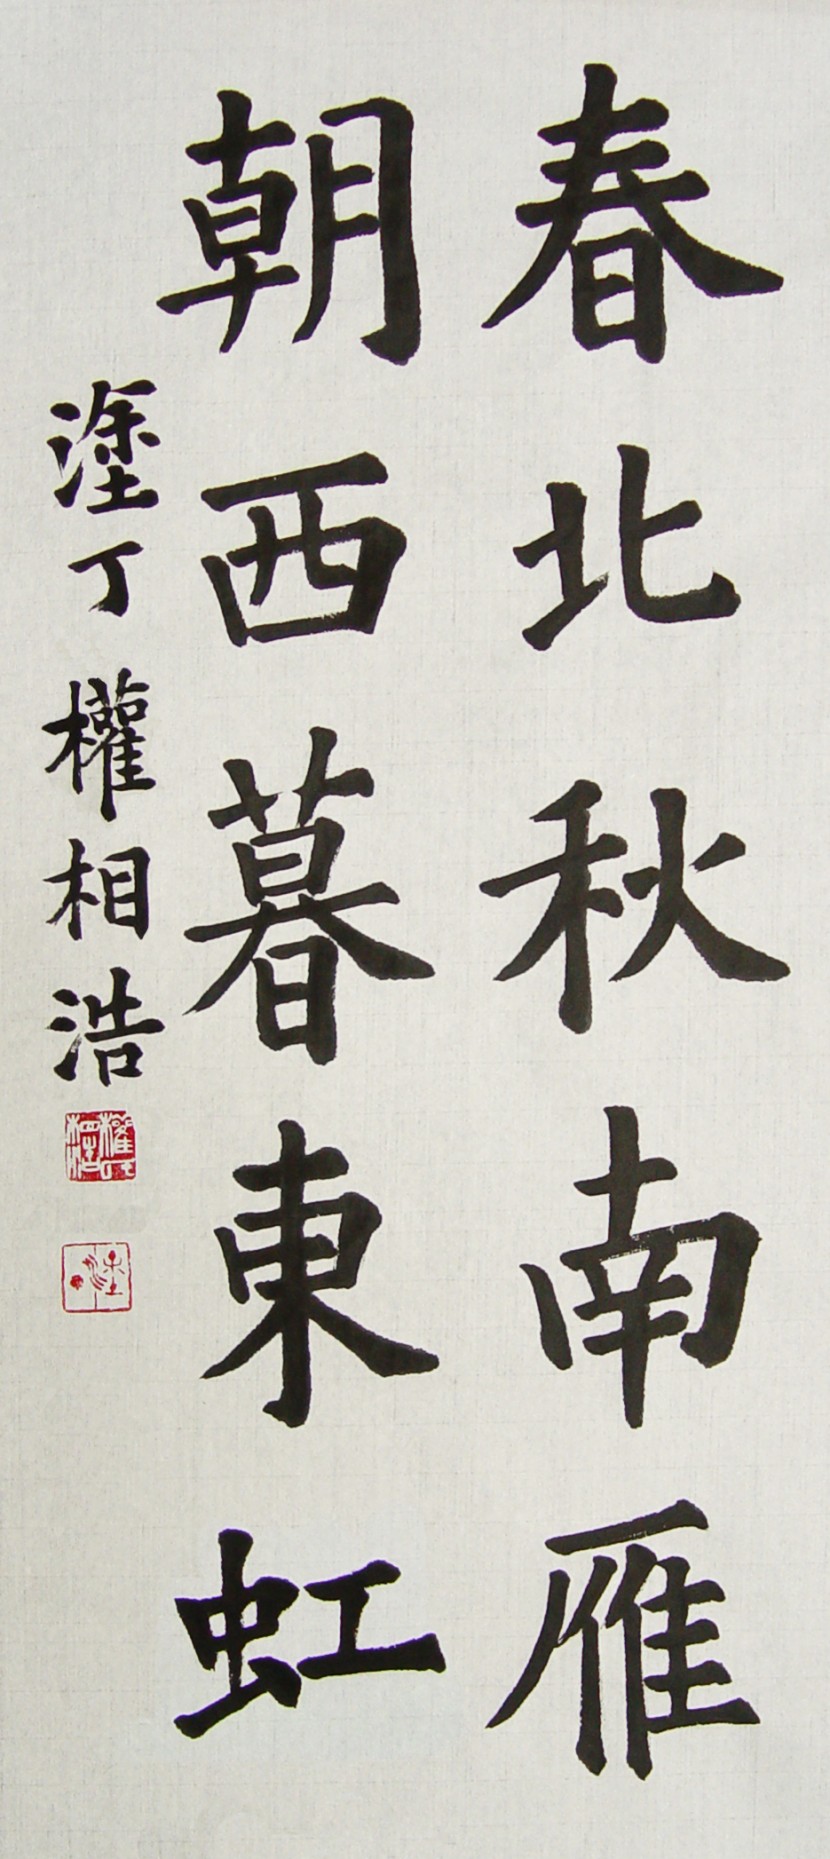 春北秋南雁
朝西暮東虹
塗丁權相浩